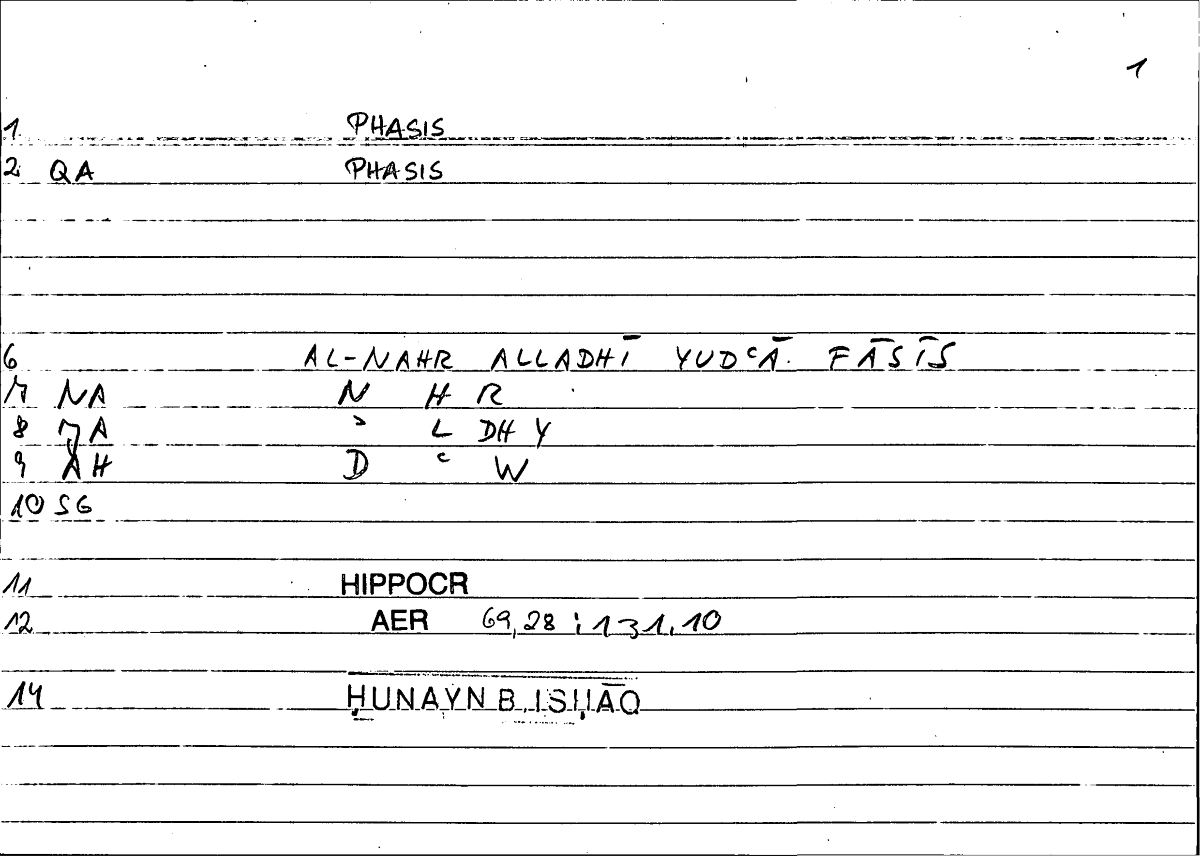 1
1 PHASIS
2 QA PHASIS
6 AL-NAHR ALLADHĪ YUDʿĀ FĀSĪS
7 NA N H R
8 JA ʾ L DH Y
9 AH D ʿ W
10 SG
11 HIPPOCR
12 AER 69,28 ; 131.10
14 ḤUNAYN B. ISḤĀQ